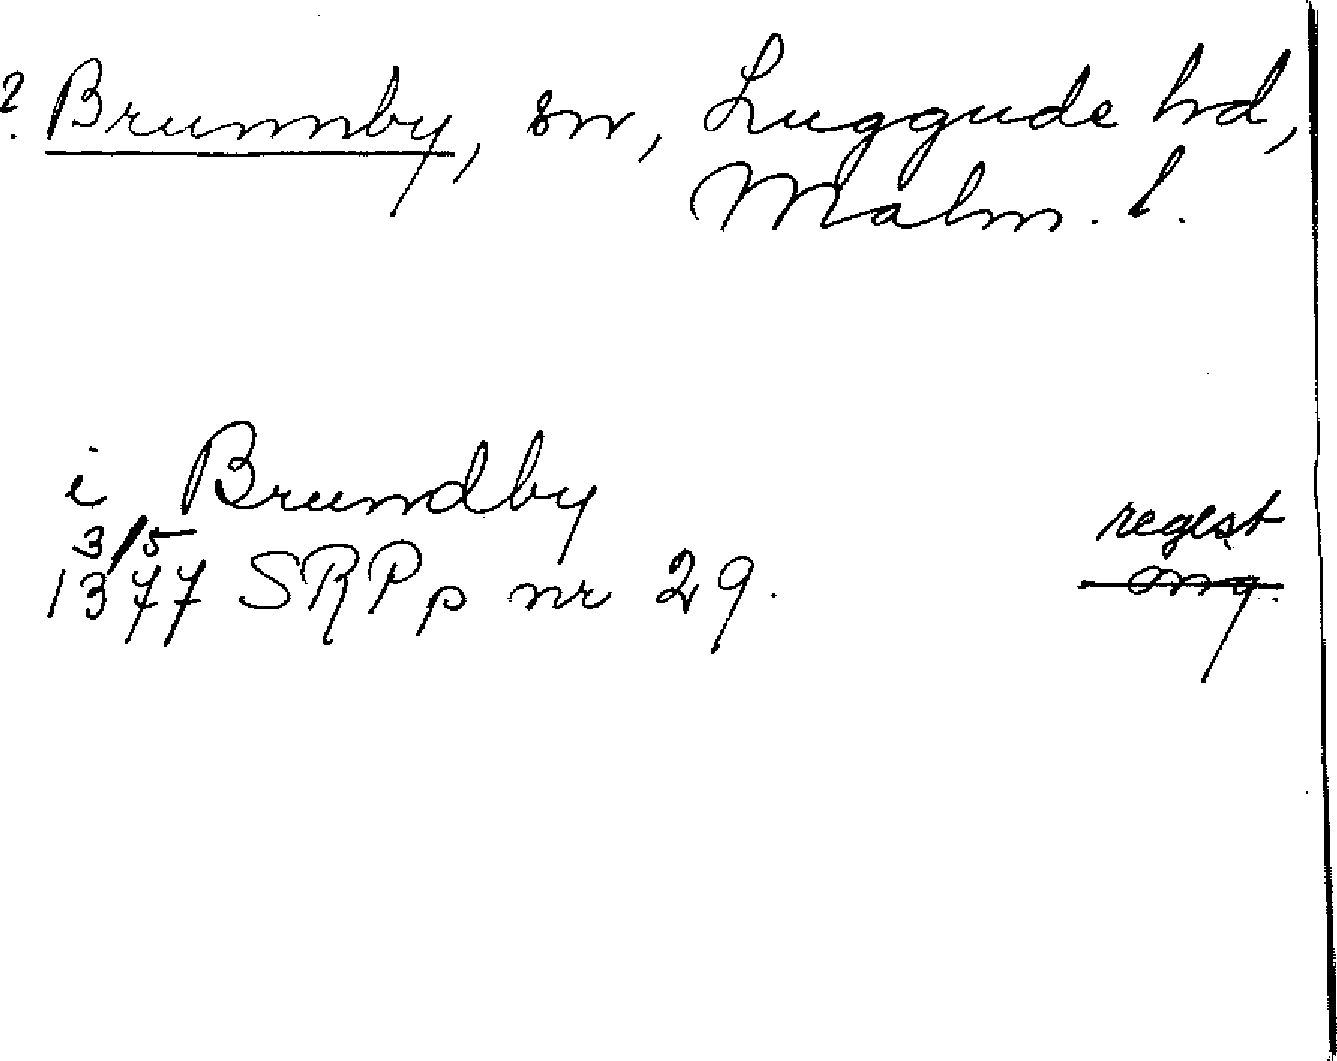 ? Brunnby, sn, Luggude hd,
Malm. l.
i Brundby
3/5
1377 SRPp nr 29.
regest
mq.